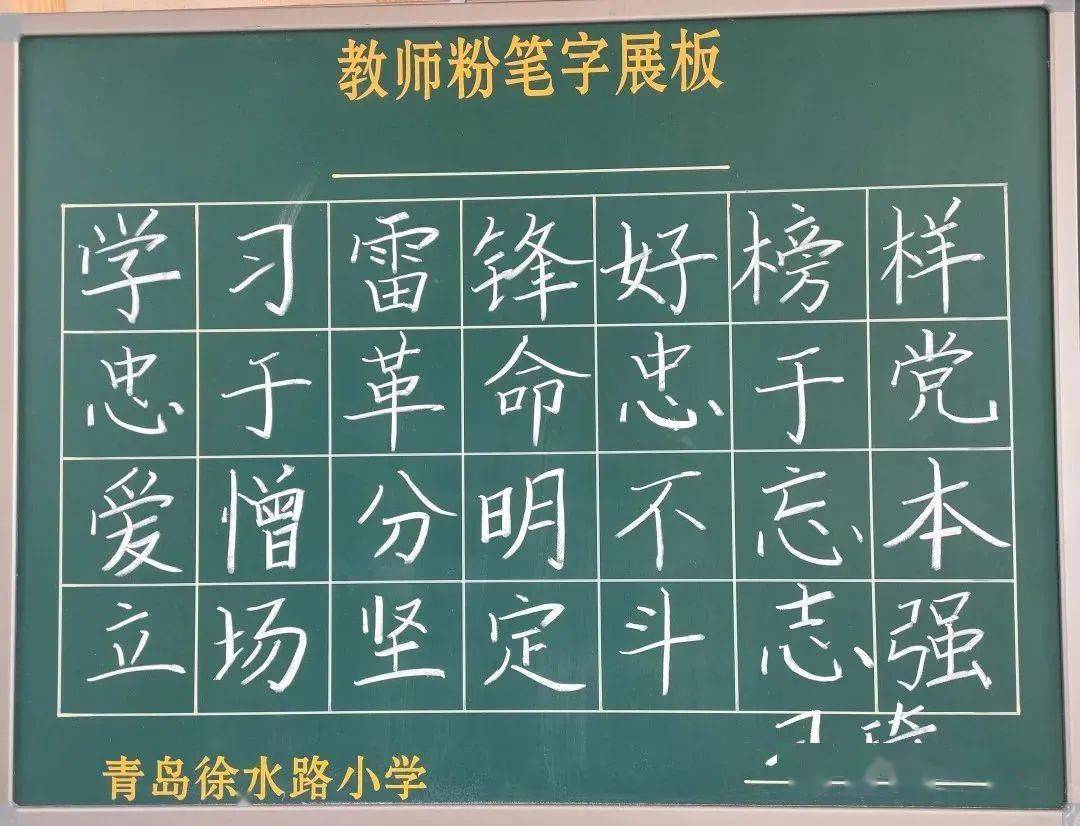 教师粉笔字展板
学习雷锋好榜样
忠于革命忠于党
爱憎分明不忘本
立场坚定斗志强
青岛徐水路小学